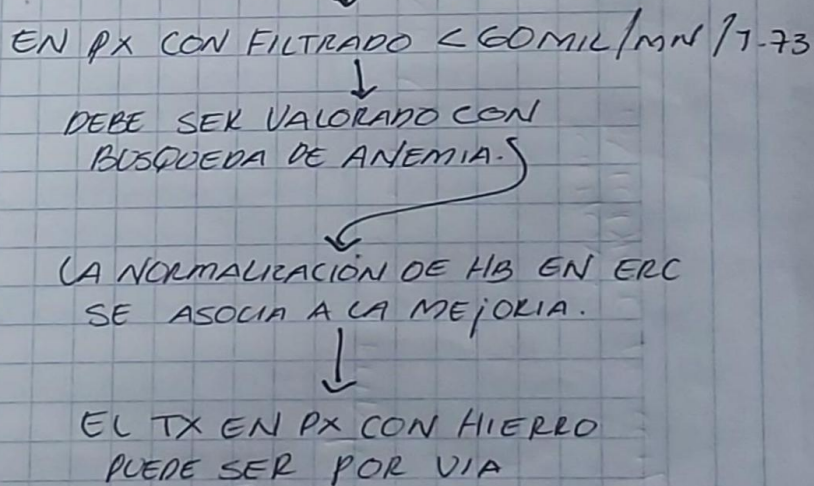 EN PX CON FILTRADO < 60MIL/MN/1-73
DEBE SER VALORADO CON
BUSQUEDA DE ANEMIA.
LA NORMALIZACIÓN DE HB EN ERC
SE ASOCIA A LA MEJORIA.
EL TX EN PX CON HIERRO
PUEDE SER POR VIA